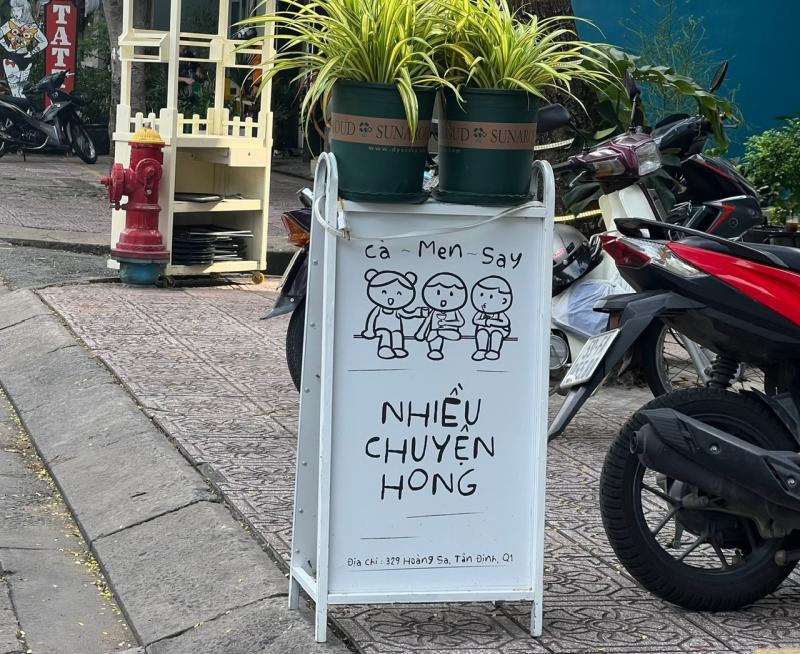 TAT
OUD SUNARO
OUD SUNARO
cà ~ Men ~ Say
NHIỀU
CHUYỆN
HONG
Địa chỉ : 329 Hoàng Sa, Tân Định, Q1